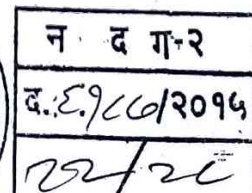 न द ग-२
द.:६१८७/२०१५
२२/२८